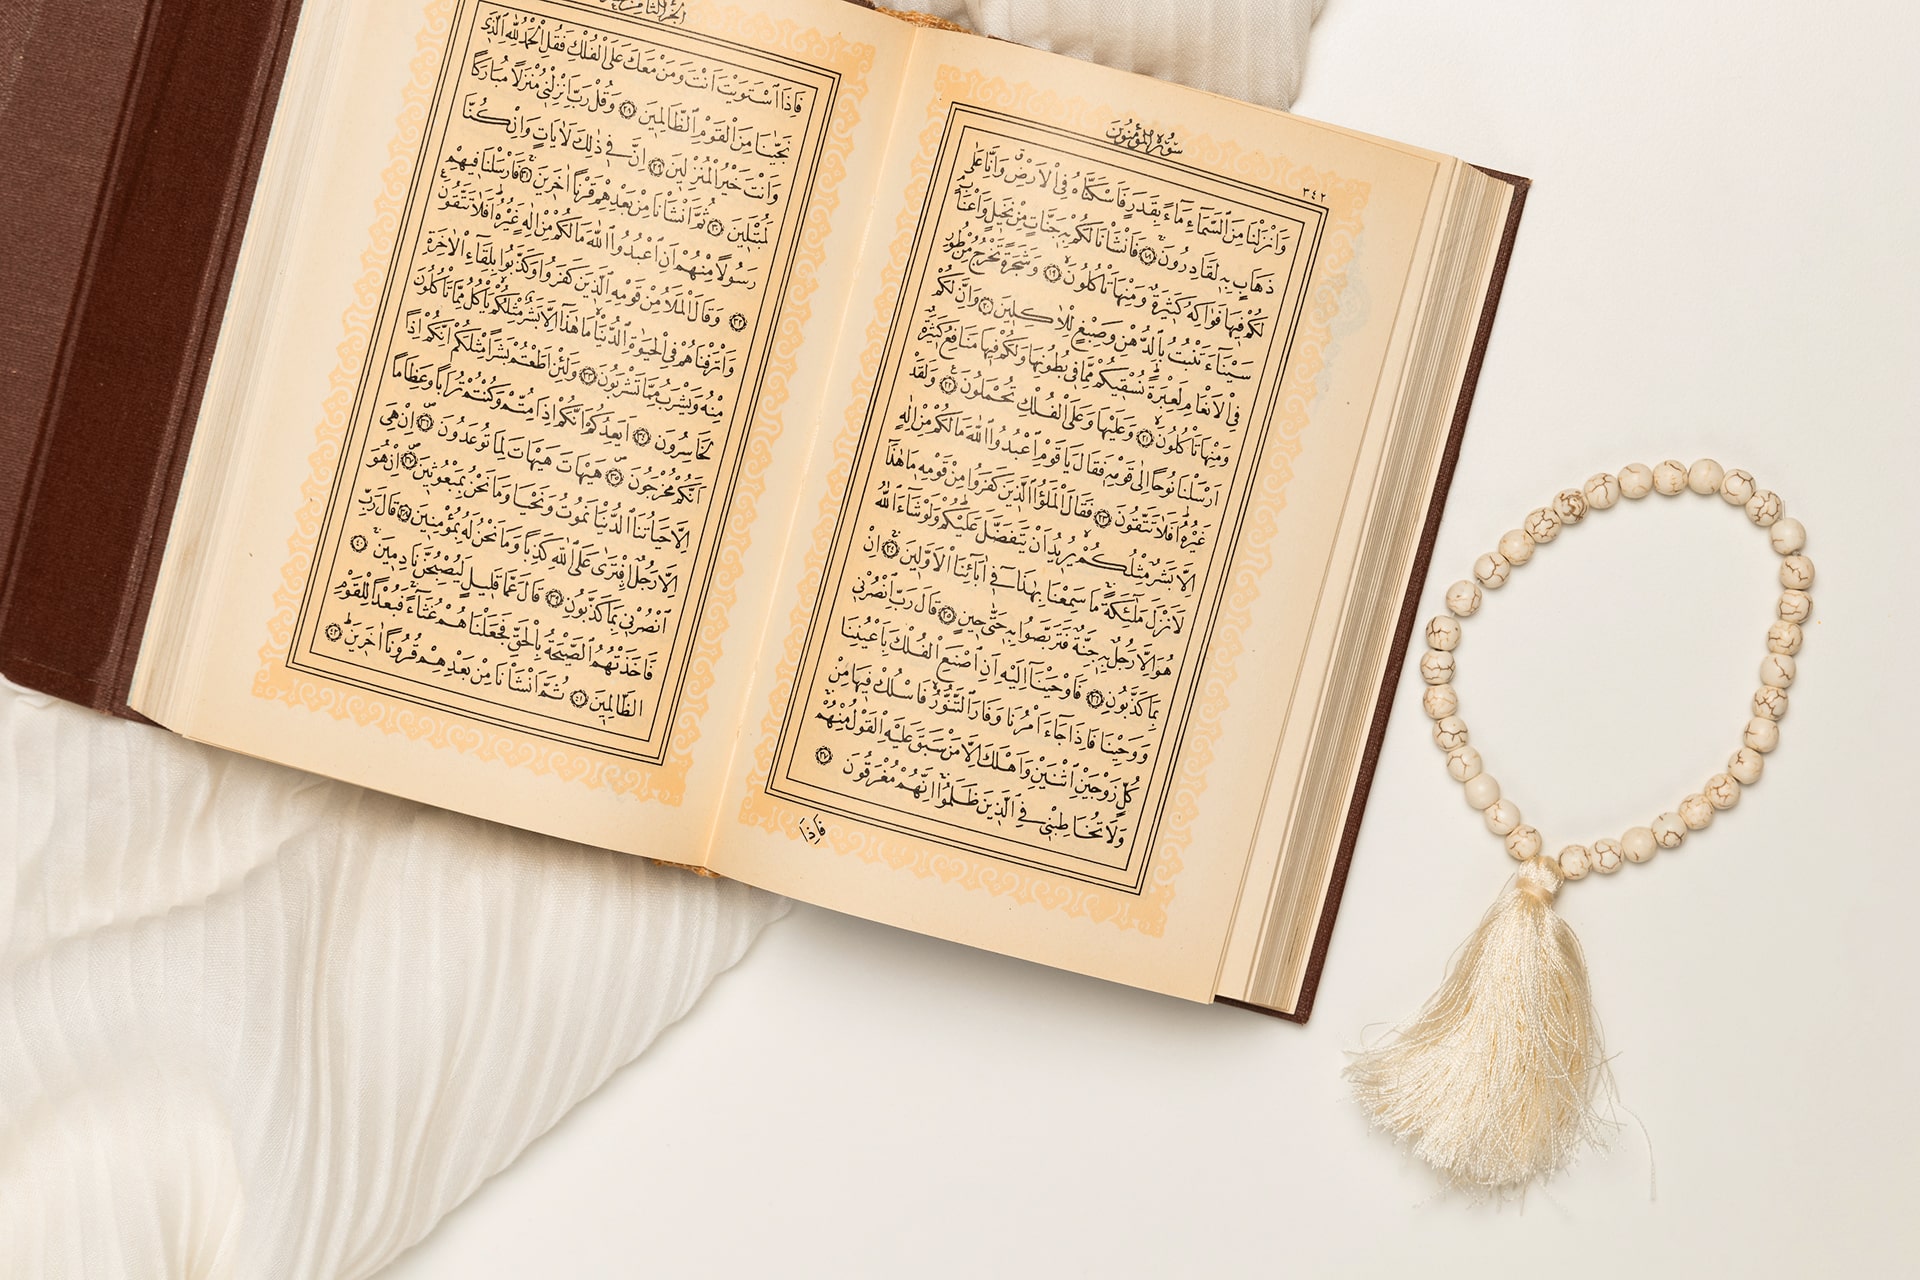 سُورَةُ الْمُؤْمِنُونَ
٣٤٢
وَاَنْزَلْنَا مِنَ السَّمَٓاءِ مَٓاءً بِقَدَرٍ فَاَسْكَنَّاهُ فِي الْاَرْضِ وَاِنَّا عَلٰى
ذَهَابٍ بِه۪ لَقَادِرُونَ ١٨ فَاَنْشَأْنَا لَكُمْ بِه۪ جَنَّاتٍ مِنْ نَخ۪يلٍ وَاَعْنَابٍ
لَكُمْ ف۪يهَا فَوَاكِهُ كَث۪يرَةٌ وَمِنْهَا تَأْكُلُونَ ١٩ وَشَجَرَةً تَخْرُجُ مِنْ طُورِ
سَيْنَٓاءَ تَنْبُتُ بِالدُّهْنِ وَصِبْغٍ لِلْاٰكِل۪ينَ ٢٠ وَاِنَّ لَكُمْ
فِي الْاَنْعَامِ لَعِبْرَةً نُسْق۪يكُمْ مِمَّا ف۪ي بُطُونِهَا وَلَكُمْ ف۪يهَا مَنَافِعُ كَث۪يرَةٌ
وَمِنْهَا تَأْكُلُونَ ٢١ وَعَلَيْهَا وَعَلَى الْفُلْكِ تُحْمَلُونَ ٢٢ وَلَقَدْ
اَرْسَلْنَا نُوحًا اِلٰى قَوْمِه۪ فَقَالَ يَا قَوْمِ اعْبُدُوا اللّٰهَ مَا لَكُمْ مِنْ اِلٰهٍ
غَيْرُهُ اَفَلَا تَتَّقُونَ ٢٣ فَقَالَ الْمَلَؤُا الَّذ۪ينَ كَفَرُوا مِنْ قَوْمِه۪ مَا هٰذَٓا
اِلَّا بَشَرٌ مِثْلُكُمْ يُر۪يدُ اَنْ يَتَفَضَّلَ عَلَيْكُمْ وَلَوْ شَٓاءَ اللّٰهُ
لَاَنْزَلَ مَلٰٓئِكَةً مَا سَمِعْنَا بِهٰذَا ف۪ٓي اٰبَٓائِنَا الْاَوَّل۪ينَ ٢٤ اِنْ
هُوَ اِلَّا رَجُلٌ بِه۪ جِنَّةٌ فَتَرَبَّصُوا بِه۪ حَتّٰى ح۪ينٍ ٢٥ قَالَ رَبِّ انْصُرْن۪ي
بِمَا كَذَّبُونِ ٢٦ فَاَوْحَيْنَٓا اِلَيْهِ اَنِ اصْنَعِ الْفُلْكَ بِاَعْيُنِنَا
وَوَحْيِنَا فَاِذَا جَٓاءَ اَمْرُنَا وَفَارَ التَّنُّورُ فَاسْلُكْ ف۪يهَا مِنْ
كُلٍّ زَوْجَيْنِ اثْنَيْنِ وَاَهْلَكَ اِلَّا مَنْ سَبَقَ عَلَيْهِ الْقَوْلُ مِنْهُمْ
وَلَا تُخَاطِبْن۪ي فِي الَّذ۪ينَ ظَلَمُوا اِنَّهُمْ مُغْرَقُونَ ٢٧
فَاِذَا
فَاِذَا اسْتَوَيْتَ اَنْتَ وَمَنْ مَعَكَ عَلَى الْفُلْكِ فَقُلِ الْحَمْدُ لِلّٰهِ الَّذ۪ي
نَجّٰينَا مِنَ الْقَوْمِ الظَّالِم۪ينَ ٢٨ وَقُلْ رَبِّ اَنْزِلْن۪ي مُنْزَلًا مُبَارَكًا
وَاَنْتَ خَيْرُ الْمُنْزِل۪ينَ ٢٩ اِنَّ ف۪ي ذٰلِكَ لَاٰيَاتٍ وَاِنْ كُنَّا
لَمُبْتَل۪ينَ ٣٠ ثُمَّ اَنْشَأْنَا مِنْ بَعْدِهِمْ قَرْنًا اٰخَر۪ينَ ٣١ فَاَرْسَلْنَا ف۪يهِمْ
رَسُولًا مِنْهُمْ اَنِ اعْبُدُوا اللّٰهَ مَا لَكُمْ مِنْ اِلٰهٍ غَيْرُهُ اَفَلَا تَتَّقُونَ
٣٢ وَقَالَ الْمَلَاُ مِنْ قَوْمِهِ الَّذ۪ينَ كَفَرُوا وَكَذَّبُوا بِلِقَٓاءِ الْاٰخِرَةِ
وَاَتْرَفْنَاهُمْ فِي الْحَيٰوةِ الدُّنْيَا مَا هٰذَٓا اِلَّا بَشَرٌ مِثْلُكُمْ يَأْكُلُ مِمَّا تَأْكُلُونَ
مِنْهُ وَيَشْرَبُ مِمَّا تَشْرَبُونَ ٣٣ وَلَئِنْ اَطَعْتُمْ بَشَرًا مِثْلَكُمْ اِنَّكُمْ اِذًا
لَخَاسِرُونَ ٣٤ اَيَعِدُكُمْ اَنَّكُمْ اِذَا مِتُّمْ وَكُنْتُمْ تُرَابًا وَعِظَامًا
اَنَّكُمْ مُخْرَجُونَ ٣٥ هَيْهَاتَ هَيْهَاتَ لِمَا تُوعَدُونَ ٣٦ اِنْ هِيَ
اِلَّا حَيَاتُنَا الدُّنْيَا نَمُوتُ وَنَحْيَا وَمَا نَحْنُ بِمَبْعُوث۪ينَ ٣٧ اِنْ هُوَ
اِلَّا رَجُلٌ افْتَرٰى عَلَى اللّٰهِ كَذِبًا وَمَا نَحْنُ لَهُ بِمُؤْمِن۪ينَ ٣٨ قَالَ رَبِّ
انْصُرْن۪ي بِمَا كَذَّبُونِ ٣٩ قَالَ عَمَّا قَل۪يلٍ لَيُصْبِحُنَّ نَادِم۪ينَ ٤٠
فَاَخَذَتْهُمُ الصَّيْحَةُ بِالْحَقِّ فَجَعَلْنَاهُمْ غُثَٓاءً فَبُعْدًا لِلْقَوْمِ
الظَّالِم۪ينَ ٤١ ثُمَّ اَنْشَأْنَا مِنْ بَعْدِهِمْ قُرُونًا اٰخَر۪ينَ ٤٢